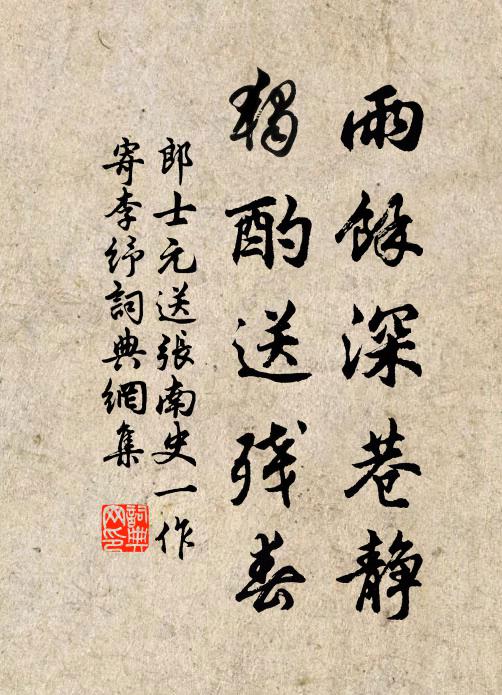 雨餘深巷靜
獨酌送残春
郎士元送張南史一作
寄李紓詞典網集
詞典网印